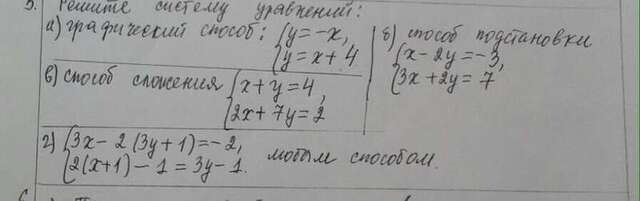 5. Решите систему уравнений:
а) графический способ: { y = -x,
{ y = x + 4
б) способ подстановки
{ x - 2y = -3,
{ 3x + 2y = 7
в) способ сложения { x + y = 4,
{ 2x + 7y = 2
г) { 3x - 2(3y + 1) = -2,
{ 2(x+1) - 1 = 3y - 1. любым способом.